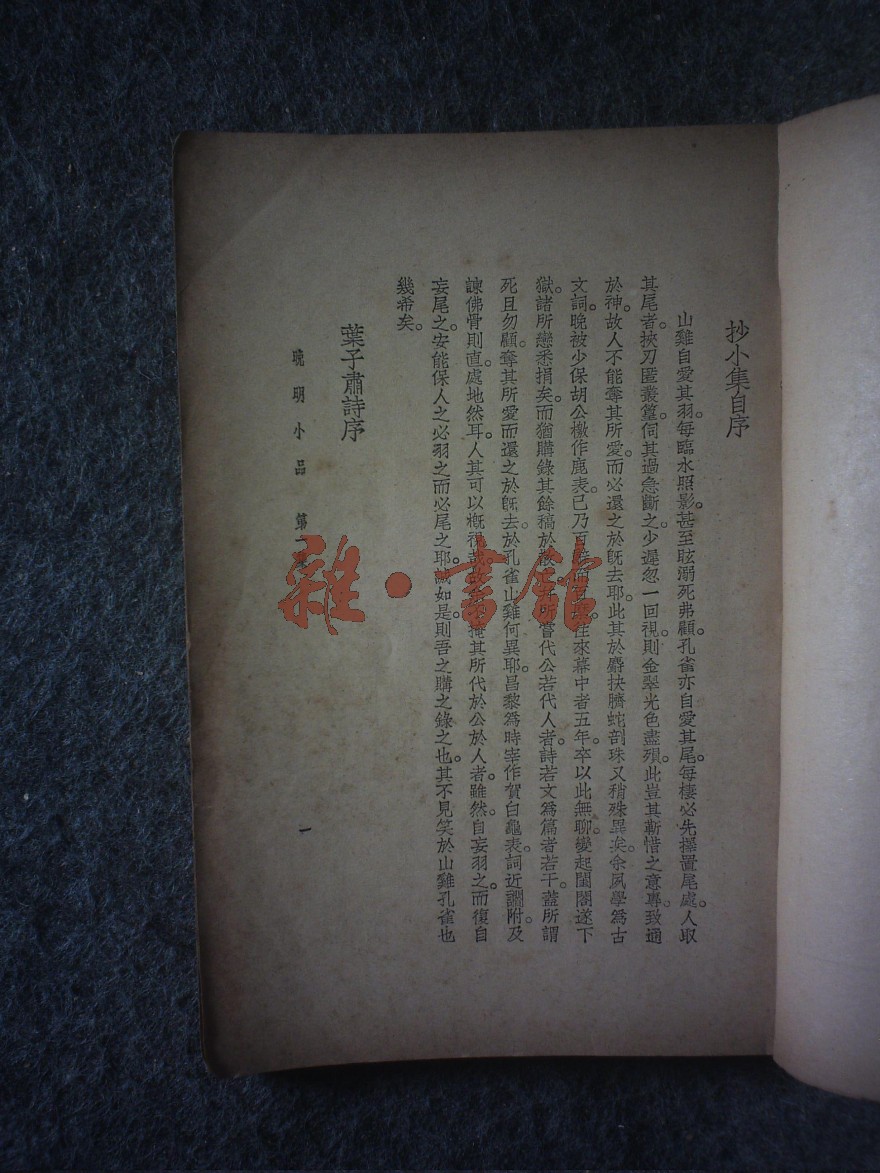 抄小集自序
山雞自愛其羽。每臨水照影。甚至眩溺死弗顧。孔雀亦自愛其尾。每棲必先擇置尾處。人取
其尾者。挾刃匿叢篁。伺其過急斷之。少遲忽一回視。則金翠光色盡殞。此豈其靳惜之意專。致通
於神。故人不能奪其所愛。而必還之於旣去耶。此其於麝抉臍蛇剖珠又稍殊異矣。余夙學爲古
文詞。晚被少保胡公檄作鹿表。已乃百辭而百往來幕中者五年。卒以此無聊。變起閨閤。遂下
獄。諸所戀悉捐矣。而猶購錄其餘稿於所嘗代公若代人者詩若文爲篇者若干。蓋所謂
死且勿顧。奪其所愛而還之於旣去。於孔雀山雞何異耶。昌黎爲時宰作賀白龜表。詞近讇附。及
諫佛骨則直。處地然耳。人其可以槪視哉。掩其所代於公於人者。雖然。自妄羽之。而復自
妄尾之。安能保人之必羽之而必尾之耶。如是則吾之購之錄之也。其不見笑於山雞孔雀也
幾希矣。
葉子肅詩序
晚明小品 第一
一
雜·書館